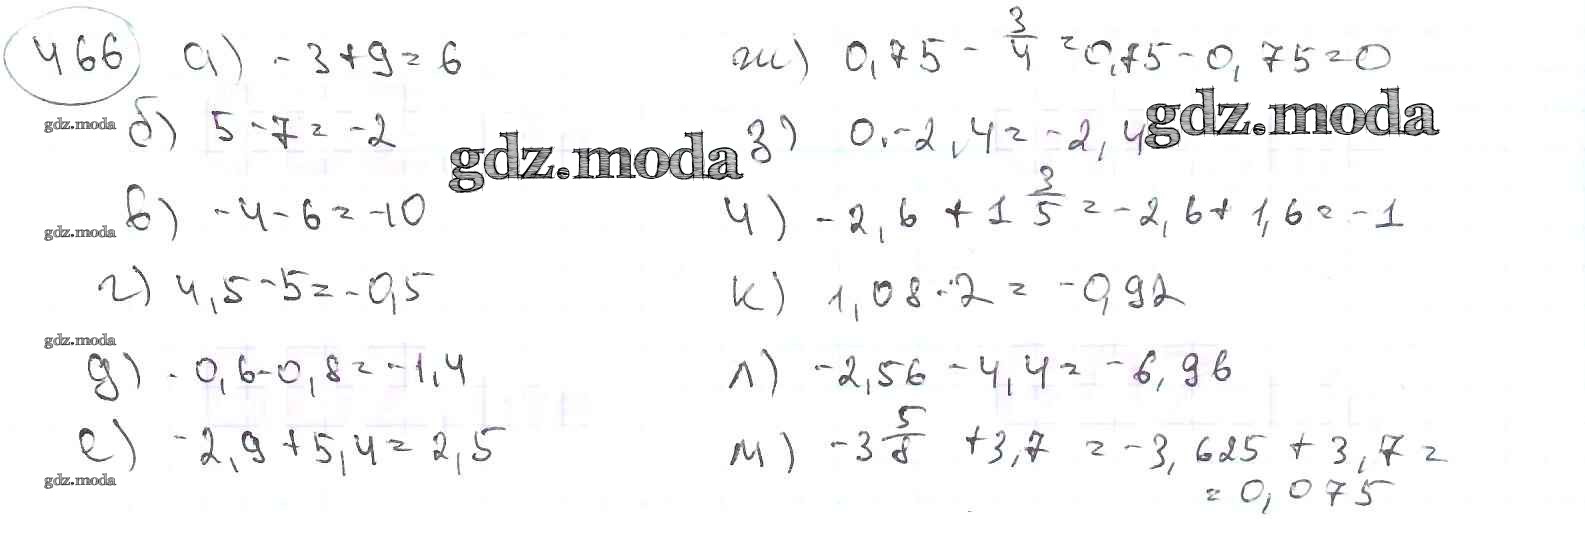 466 а) -3+9=6
б) 5-7=-2
в) -4-6=-10
г) 4,5-5=-0,5
д) -0,6-0,8=-1,4
е) -2,9+5,4=2,5
ж) 0,75 - 3/4 = 0,75-0,75=0
з) 0-2,4=-2,4
и) -2,6 + 1 3/5 = -2,6+1,6=-1
к) 1,08-2=-0,92
л) -2,56-4,4=-6,96
м) -3 5/8 +3,7 = -3,625 + 3,7 =
= 0,075
gdz.moda
gdz.moda
gdz.moda
gdz.moda
gdz.moda
gdz.moda